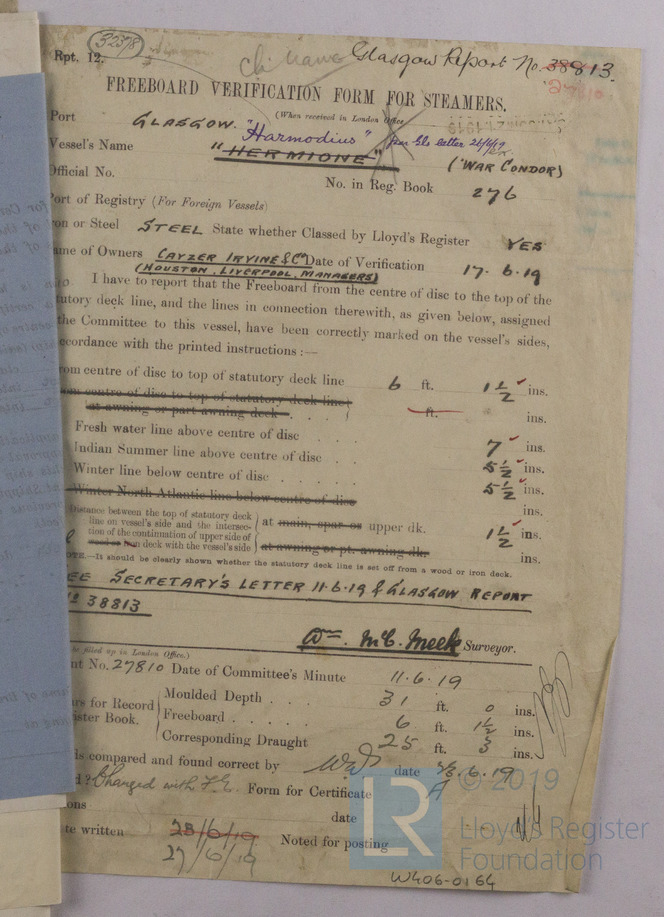 32378
Rpt. 12.
Glasgow Report No. 38813.
27810
FREEBOARD VERIFICATION FORM FOR STEAMERS.
(When received in London Office
Port GLASGOW.
"Harmodius" per Gls letter 26/6/19
Vessel's Name "HERMIONE" ("WAR CONDOR)
Official No. No. in Reg. Book 276
Port of Registry (For Foreign Vessels)
ron or Steel STEEL State whether Classed by Lloyd's Register YES
ame of Owners CAYZER IRVINE & Co Date of Verification 17.6.19
(HOUSTON, LIVERPOOL, MANAGERS)
I have to report that the Freeboard from the centre of disc to the top of the
tutory deck line, and the lines in connection therewith, as given below, assigned
the Committee to this vessel, have been correctly marked on the vessel's sides,
ccordance with the printed instructions :—
rom centre of disc to top of statutory deck line 6 ft. 1½ ins.
om centre of disc to top of statutory deck line
at awning or part awning deck . . . . ft. ins.
Fresh water line above centre of disc . . . 7 ins.
Indian Summer line above centre of disc . . 5½ ins.
Winter line below centre of disc . . . . . 5½ ins.
Winter North Atlantic line below centre of disc ins.
Distance between the top of statutory deck
line on vessel's side and the intersec-
tion of the continuation of upper side of
wood or iron deck with the vessel's side
at main, spar or upper dk. 1½ ins.
at awning or pt. awning dk. ins.
NOTE.—It should be clearly shown whether the statutory deck line is set off from a wood or iron deck.
EE SECRETARY'S LETTER 11.6.19 & GLASGOW REPORT
No 38813
Wm. McC. Meek Surveyor.
be filled up in London Office.)
nt No. 27810 Date of Committee's Minute 11.6.19
ars for Record
ister Book.
Moulded Depth . . . 31 ft. 0 ins.
Freeboard . . . . . 6 ft. 1½ ins.
Corresponding Draught 25 ft. 3 ins.
is compared and found correct by date 6.19
d? Charged with F.E. Form for Certificate A
ions date
te written 28/6/19 Noted for posting
27/6/19
© 2019
LR
Lloyd's Register
Foundation
W406-0164